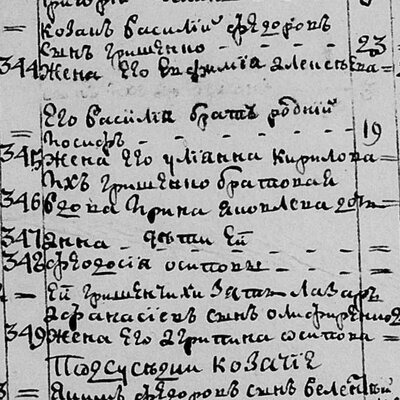 козакъ василий федоровъ
сынъ грищенко - - - 23
344 жена его евфимиа алексеева
его василиа братъ родний
иосифъ - - - - - 19
345 жена его улианна кирилова
ихъ грищенко братовая
346 вдова ирина яковлева
347 анна - дети ей
348 феодосия осиповы
ей грищенчихи зать лазаръ
афанасиевъ сынъ
349 жена его агрипина осипова
Подсуседки козачие
якимъ федоровъ сынъ